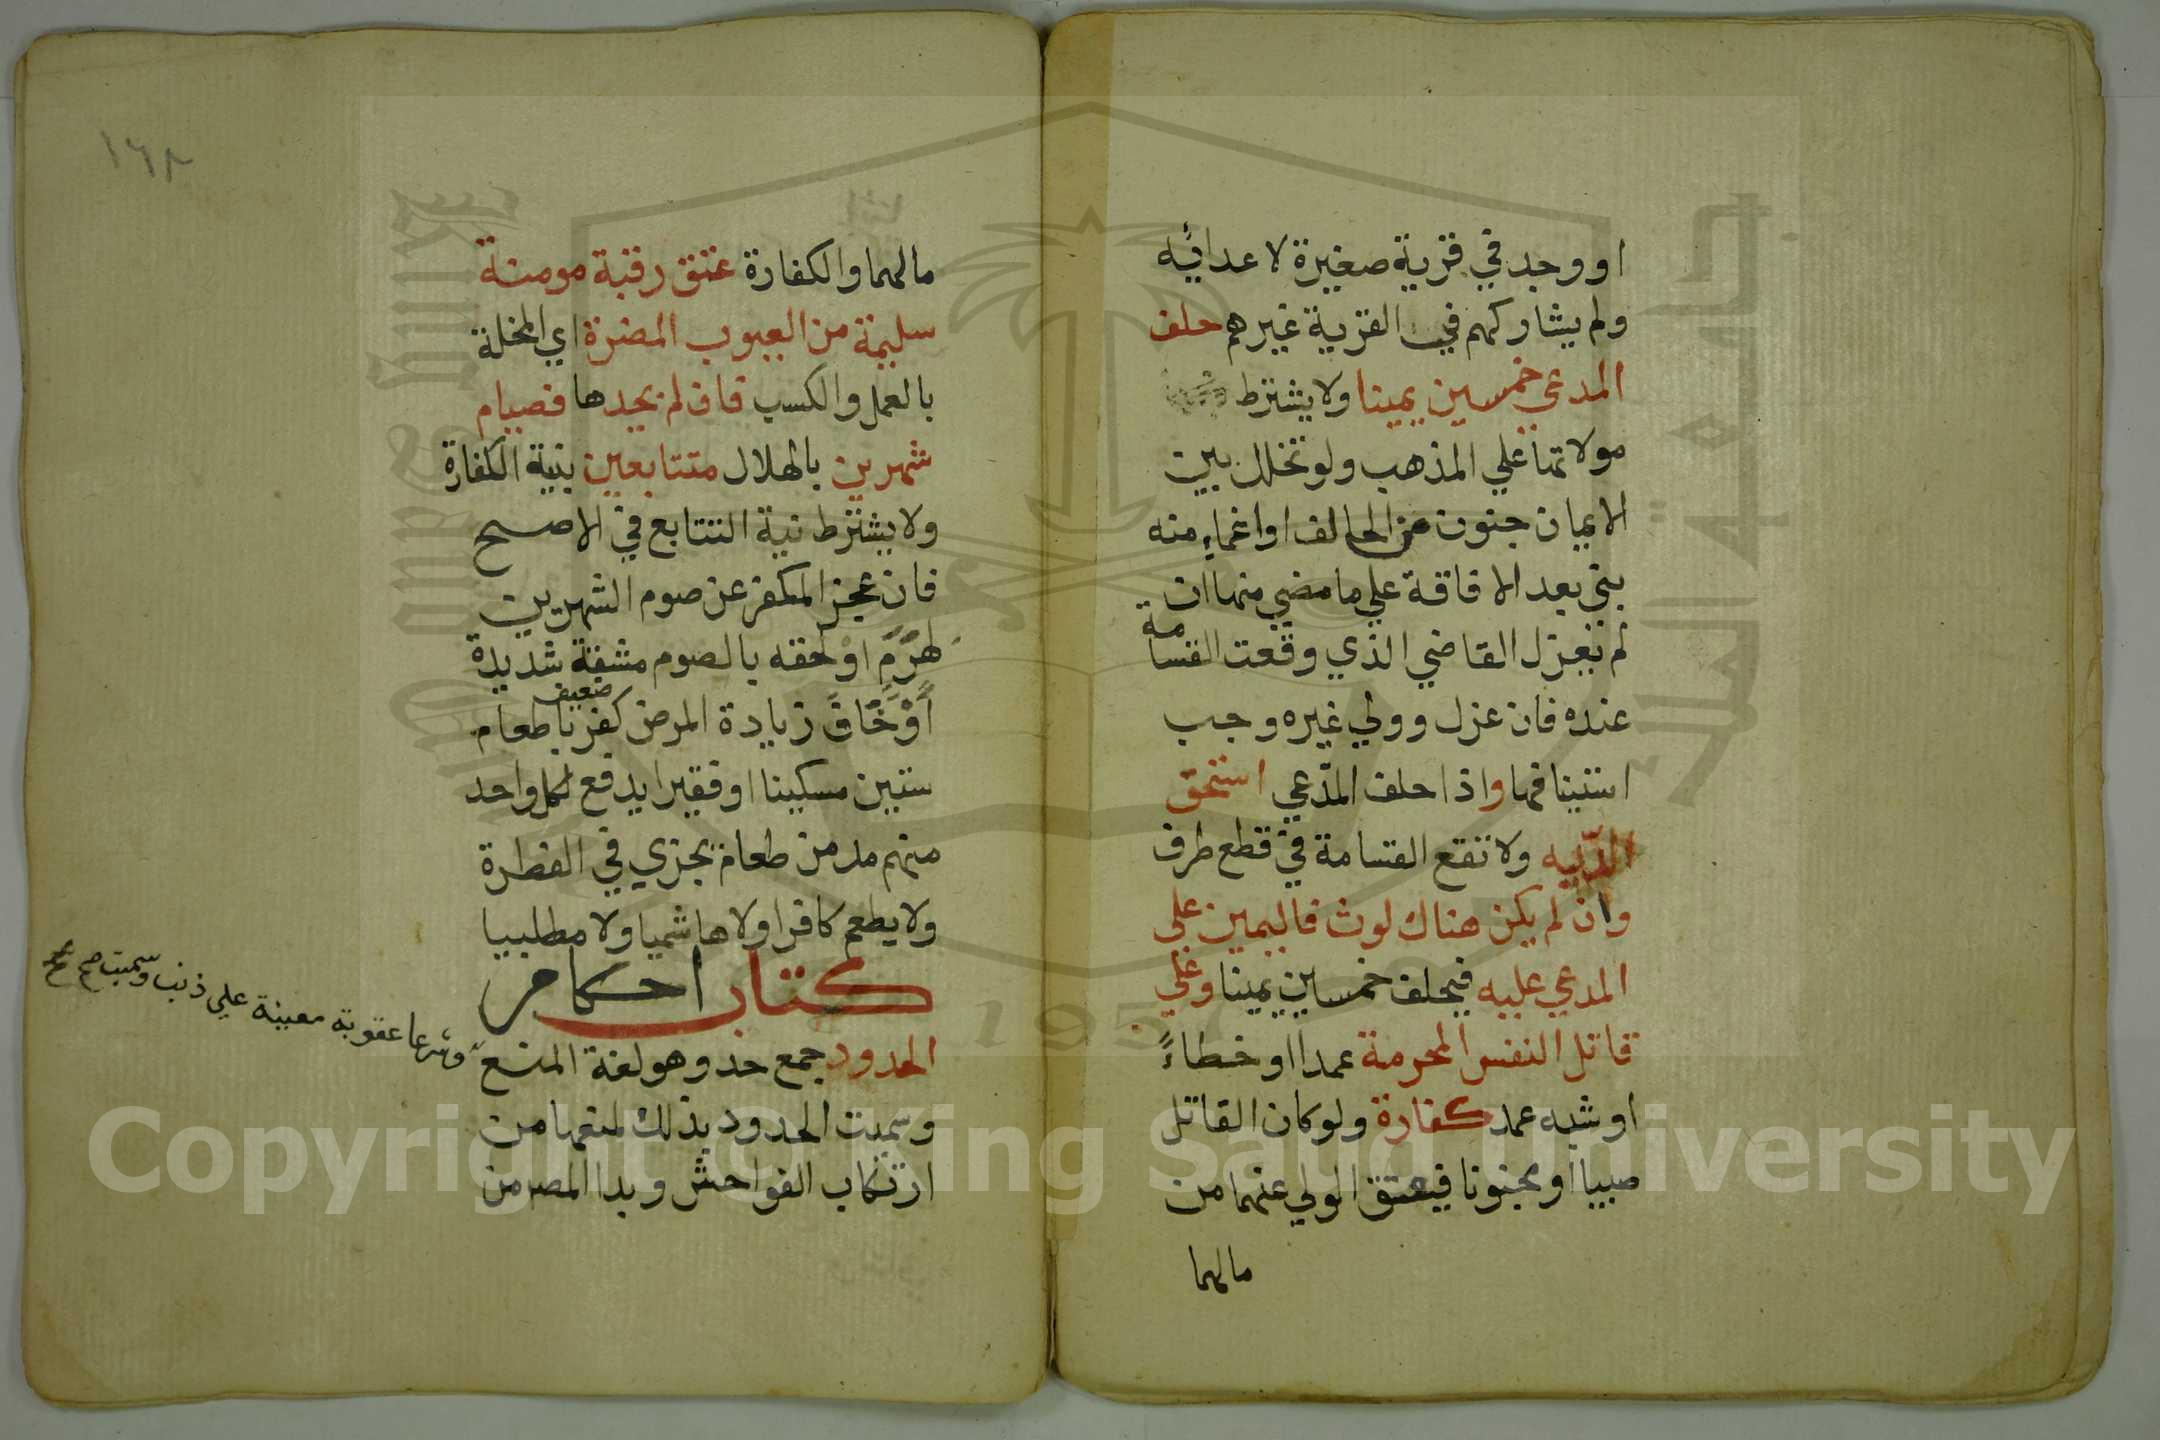 او وجد في قرية صغيرة لاعدائه
ولم يشاركهم في القرية غيرهم حلف
المدعي خمسين يمينا ولا يشترط
موالاتها علي المذهب ولو تخلل بين
الايمان جنون من الحالف او اغماء منه
بني بعد الافاقة علي ما مضي منها ان
لم يعزل القاضي الذي وقعت القسامة
عنده فان عزل وولي غيره وجب
استينافها واذا حلف المدّعي استحق
الدّيه ولا تقع القسامة في قطع طرف
وان لم يكن هناك لوث فاليمين علي
المدعي عليه فيحلف خمسين يمينا وعلي
قاتل النفس المحرمة عمدا او خطاءً
او شبه عمد كفارة ولو كان القاتل
صبيا او مجنونا فيعتق الولي عنهما من
مالهما
١٦٨
مالهما والكفارة عتق رقبة مومنة
سليمة من العيوب المضرة اي المخلة
بالعمل والكسب فان لم يجدها فصيام
شهرين بالهلال متتابعين بنية الكفارة
ولا يشترط نية التتابع في الاصح
فان عجز المكفر عن صوم الشهرين
لهَرَمٍ او لحقه بالصوم مشقة شديدة
أَوْ خَافَ زيادة المرض كفر باطعام
ضعيف
ستين مسكينا او فقيرا يدفع لكل واحد
منهم مد من طعام يجزي في الفطرة
ولا يطعم كافرا ولا هاشميا ولا مطلبيا
كتاب احكام
الحدود جمع حد وهو لغة المنع
وشرعا عقوبة معينة علي ذنب وسميت صح
وسميت الحدود بذلك لمنعها من
ارتكاب الفواحش وبدا المصر من
جامعة الملك سعود
King Saud University
1957
Copyright © King Saud University